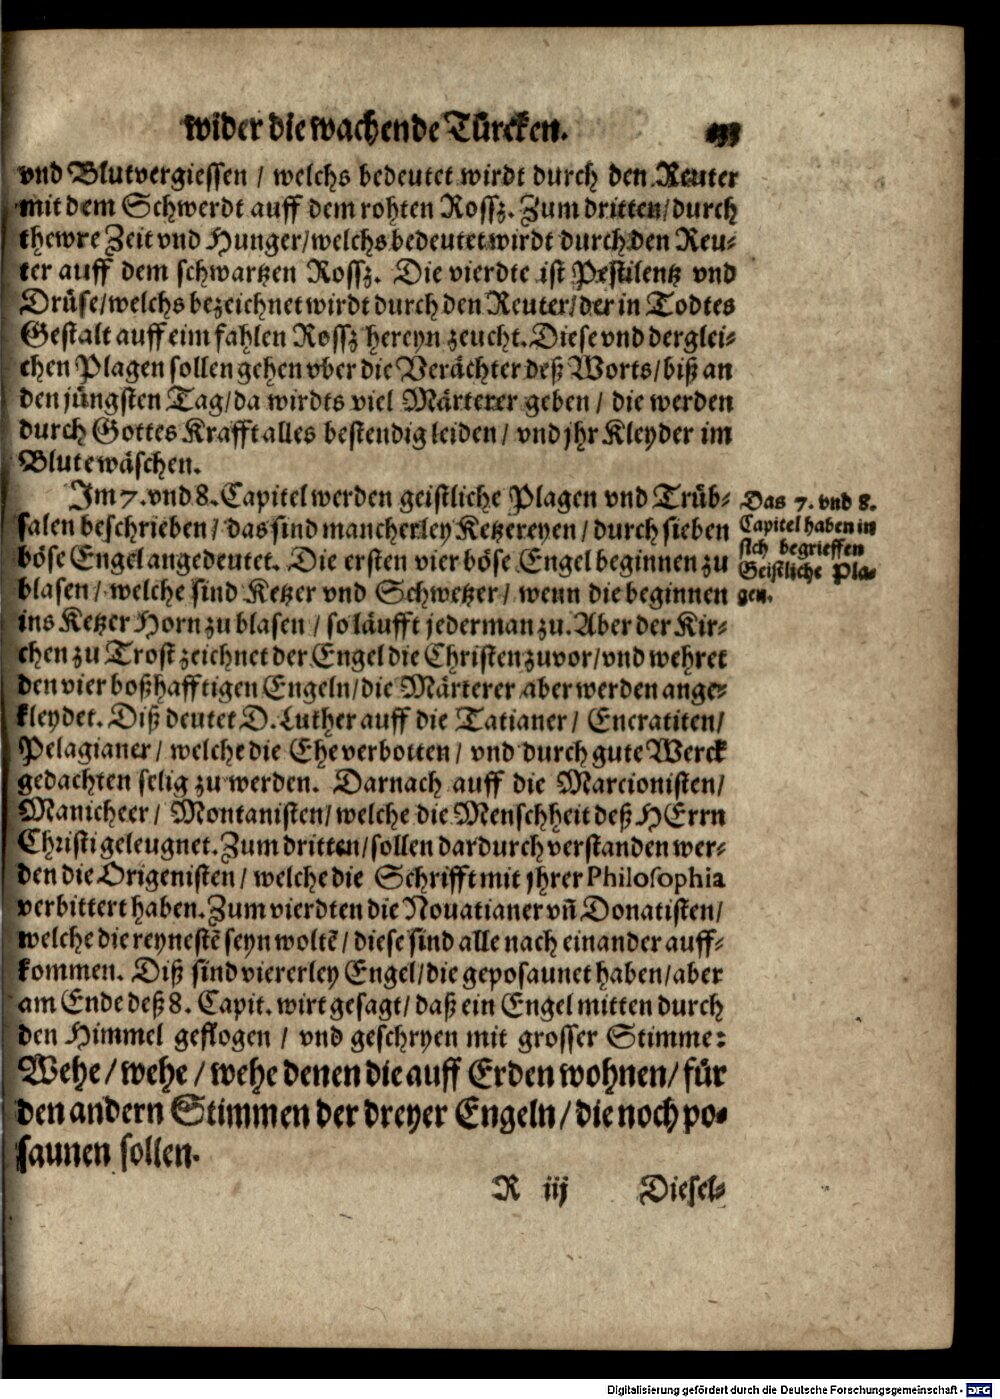 wider die wachende Türcken.
vnd Blutvergiessen / welchs bedeutet wirdt durch den Reuter
mit dem Schwerdt auff dem rohten Rossz. Zum dritten/durch
thewre Zeit vnd Hunger/welchs bedeutet wirdt durch den Reu-
ter auff dem schwartzen Rossz. Die vierdte ist Pestilentz vnd
Drüse/welchs bezeichnet wirdt durch den Reuter/der in Todtes
Gestalt auff eim fahlen Rossz hereyn zeucht. Diese vnd derglei-
chen Plagen sollen gehen vber die Verächter deß Worts/biß an
den jüngsten Tag/da wirdts viel Märterer geben / die werden
durch Gottes Krafft alles bestendig leiden / vnd jhr Kleyder im
Blute wäschen.
Im 7. vnd 8. Capitel werden geistliche Plagen vnd Trüb-
salen beschrieben / das sind mancherley Ketzereyen / durch sieben
böse Engel angedeutet. Die ersten vier böse Engel beginnen zu
blasen / welche sind Ketzer vnd Schwetzer / wenn die beginnen
ins Ketzer Horn zu blasen / so läufft jederman zu. Aber der Kir-
chen zu Trost zeichnet der Engel die Christen zuvor/vnd wehret
den vier boßhafftigen Engeln/die Märterer aber werden ange-
kleydet. Diß deutet D. Luther auff die Tatianer / Encratiten/
Pelagianer / welche die Ehe verbotten / vnd durch gute Werck
gedachten selig zu werden. Darnach auff die Marcionisten/
Manicheer / Montanisten/welche die Menschheit deß HErrn
Christi geleugnet. Zum dritten/sollen dardurch verstanden wer-
den die Origenisten / welche die Schrifft mit jhrer Philosophia
verbittert haben. Zum vierdten die Nouatianer vñ Donatisten/
welche die reynestē seyn woltē / diese sind alle nach einander auff-
kommen. Diß sind viererley Engel/die geposaunet haben/aber
am Ende deß 8. Capit. wirt gesagt/ daß ein Engel mitten durch
den Himmel geflogen / vnd geschryen mit grosser Stimme:
Wehe / wehe / wehe denen die auff Erden wohnen/ für
den andern Stimmen der dreyer Engeln / die noch po-
saunen sollen.
R iij Diesel-
Das 7. vnd 8.
Capitel haben in
sich begrieffen
Geistliche Pla-
gen.
Digitalisierung gefördert durch die Deutsche Forschungsgemeinschaft - DFG